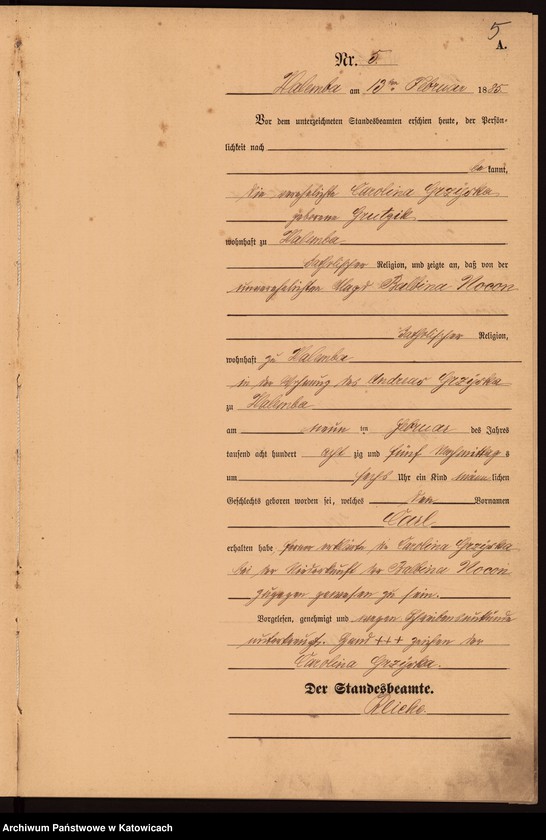 5
A.
Nr. 5
Halemba am 13ten Februar 1885
Vor dem unterzeichneten Standesbeamten erschien heute, der Persön-
lichkeit nach
bekannt,
die verehelichte Carolina Grzyska
geborene
wohnhaft zu Halemba
katholischer Religion, und zeigte an, daß von der
unverehelichten Magd Balbina Nocon
katholischer Religion,
wohnhaft zu Halemba
in der Wohnung des Andreas Grzyska
zu Halemba
am neun ten Februar des Jahres
tausend acht hundert acht zig und fünf Nachmittag s
um sechs Uhr ein Kind männlichen
Geschlechts geboren worden sei, welches den Vornamen
Carl
erhalten habe ferner erklärte die Carolina Grzyska
bei der Niederkunft der Balbina Nocon
zugegen gewesen zu sein.
Vorgelesen, genehmigt und wegen Schreibensunkunde
unterkreuzt. Hand +++ zeichen der
Carolina Grzyska.
Der Standesbeamte.
Archiwum Państwowe w Katowicach